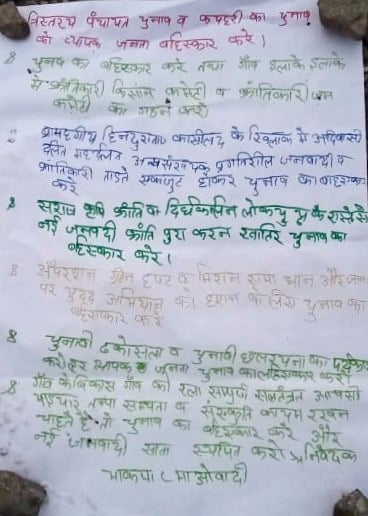 त्रिस्तरीय पंचायत चुनाव व कचहरी का चुनाव
को व्यापक जनता बहिस्कार करें।
8 चुनाव का बहिस्कार करें तथा गाँव इलाके इलाके
में क्रांतिकारी किसान कमेटी व क्रांतिकारी जन
कमेटी का गठन करो
ब्राम्हणीय हिन्दुत्ववाद फासीवाद के खिलाफ में आदिवासी
दलित महादलित अल्पसंख्यक प्रगतिशील जनवादी व
क्रांतिकारी ताकते एकजुट होकर चुनाव का बहिस्कार
करें
8 सशस्त्र कृषि क्रांति व दिर्घकालिन लोकयुद्ध के रास्ते से
नई जनवादी क्रांति पुरा करन खातिर चुनाव का
बहिस्कार करें।
8 ऑपरेशन ग्रीन हण्ट व मिशन समाधान और जनता
पर युद्ध अभियान को हराने के लिए चुनाव का
बहिस्कार करें
8 चुनावी ढकोसला व चुनावी छलरचना का
करें हर व्यापक जनता चुनाव का बहिस्कार करें
8 गाँव के विकास गाँव की रक्षा सम्पूर्ण आपसी
भाईचारे तथा सभ्यता व संस्कृति कायम रखना
चाहते है तो चुनाव का बहिस्कार करें और
नई जनवादी सत्ता स्थापित करो निवेदक
भाकपा (माओवादी